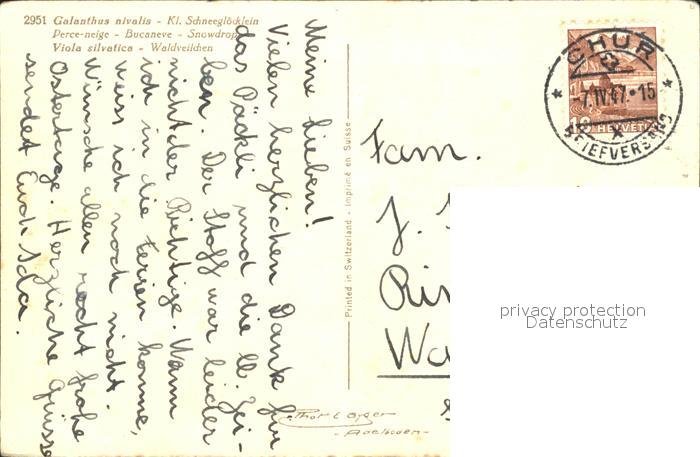 2951 Galanthus nivalis - Kl. Schneeglöcklein
Perce-neige - Bucaneve - Snowdrop
Viola silvatica - Waldveilchen
Meine Lieben!
Vielen herzlichen Dank für
das Päckli und die lb. Zei-
len. Der Stoff war leider
nicht der Richtige. Wann
ich in die Ferien komme,
weiss ich noch nicht.
Wünsche allen recht frohe
Ostertage. Herzliche Grüsse
sendet Euch Ida.
Printed in Switzerland - Imprimé en Suisse
CHUR
-7.IV.47.-15
BRIEFVERSAND
10 HELVETIA
Fam.
J.
privacy protection
Datenschutz
- Adelboden -